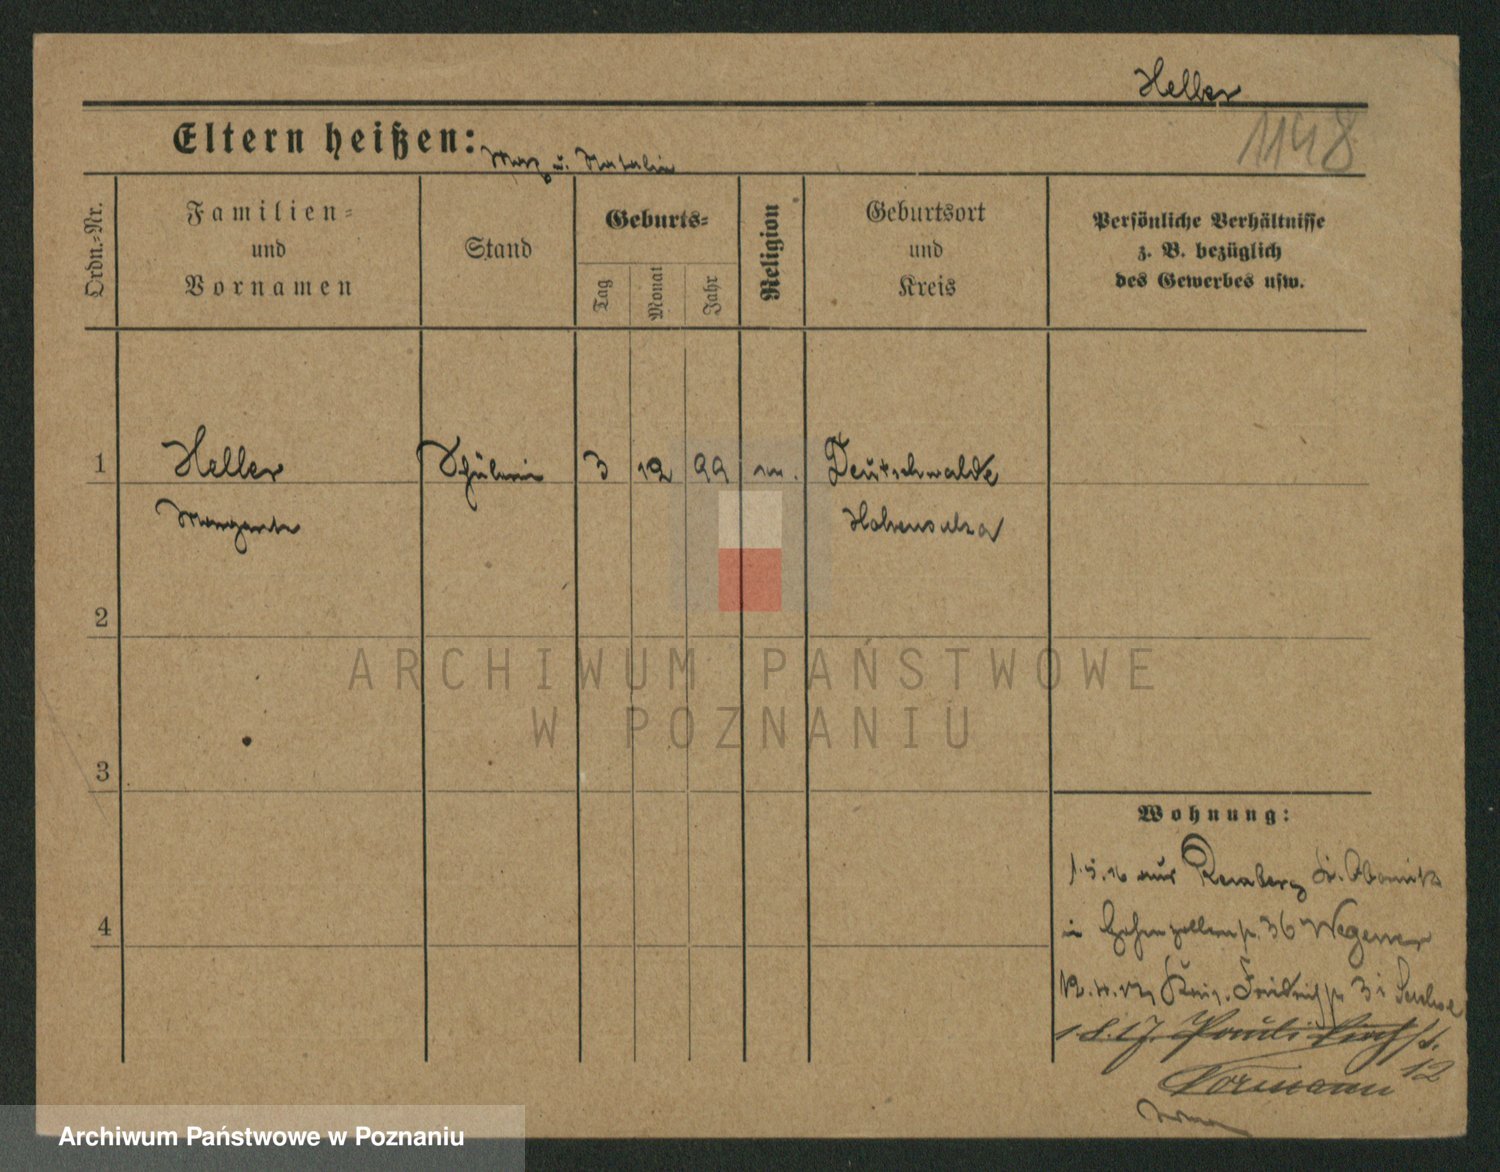 Heller
1148
Eltern heißen: Max u. Natalie
Ordn.-Nr.
Familien-
und
Vornamen
Stand
Geburts-
Tag
Monat
Jahr
Religion
Geburtsort
und
Kreis
Persönliche Verhältnisse
z. B. bezüglich
des Gewerbes usw.
1 Heller Schülerin 3 12 99 m. Deutschwalde
Margarete Hohensalza
2
ARCHIWUM PAŃSTWOWE
W POZNANIU
3
Wohnung:
1.5.16 aus Obornik
4
in Hohenzollernstr. 36 Wegener
Friedrichstr. 31
1.8.17. Paulikirchstr.
12
Normann
Archiwum Państwowe w Poznaniu